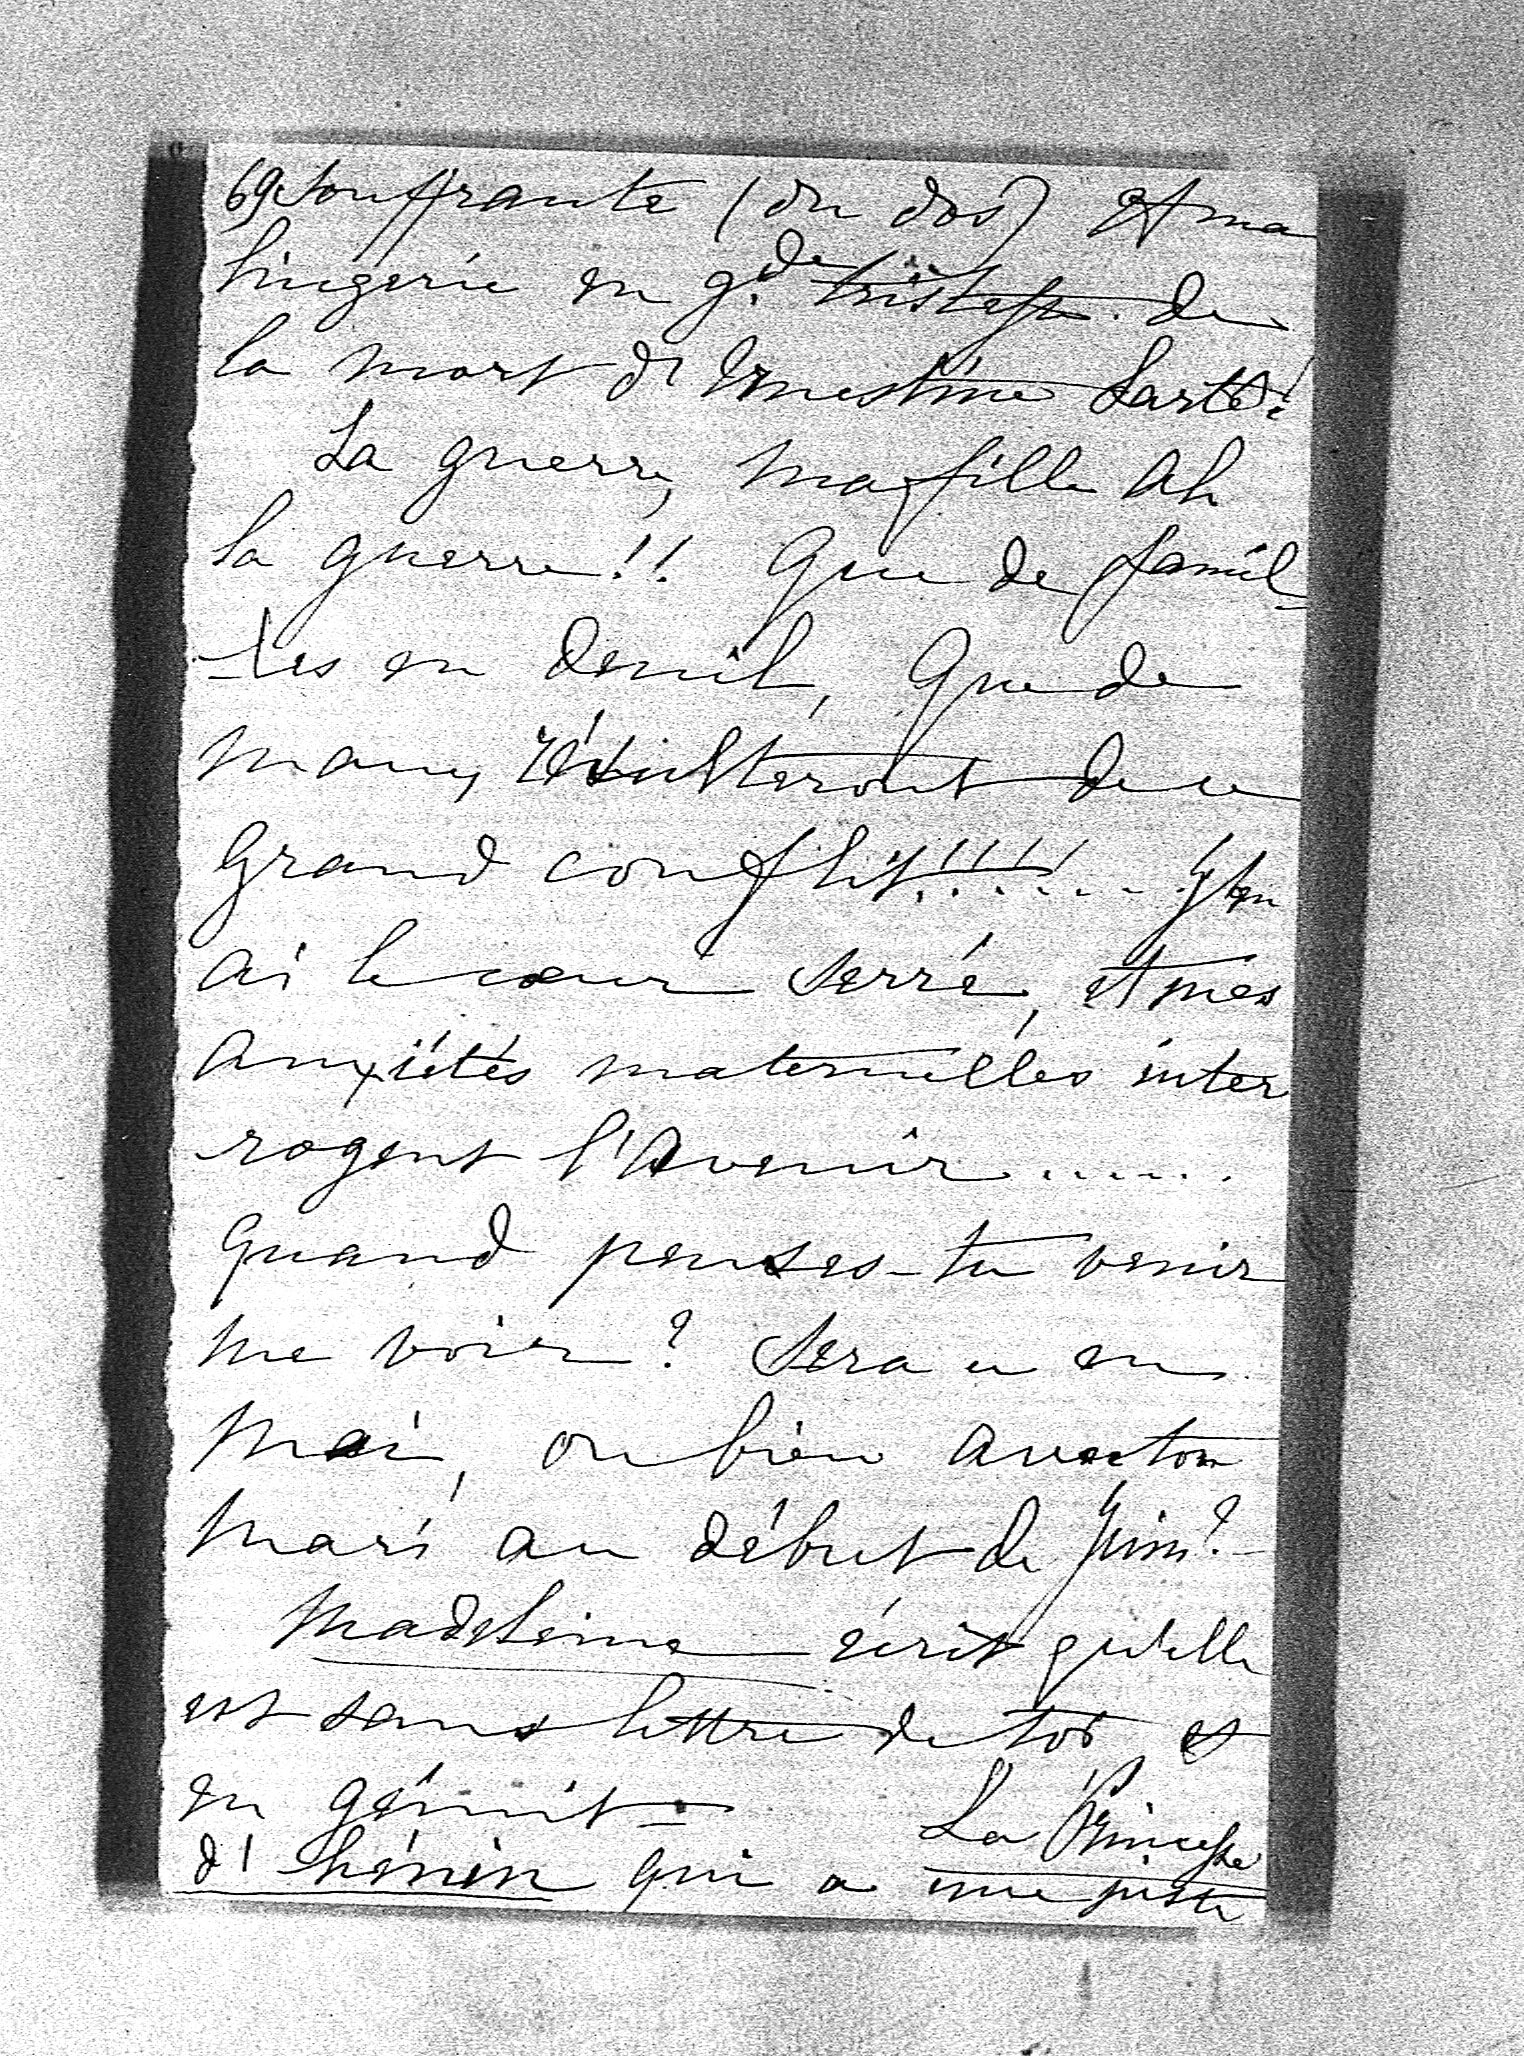 69 Souffrante (du dos) et ma
lingerie en gde tristesse de
la mort d'Ernestine Larté!
La guerre, ma fille Ah
la guerre!! Que de famil-
-les en deuil, Que de
maux, résulteront de ce
Grand conflit!!!!!.... J'en
ai le cœur serré, et mes
anxiétés maternelles inter
rogent l'Avenir......
Quand penses-tu venir
me voir? Sera ce en
Mai, ou bien avec ton
Mari au début de Juin?
Madeleine écrit qu'elle
est sans lettre de toi et
en gémit = La Princesse
d'Hénin qui a une juste